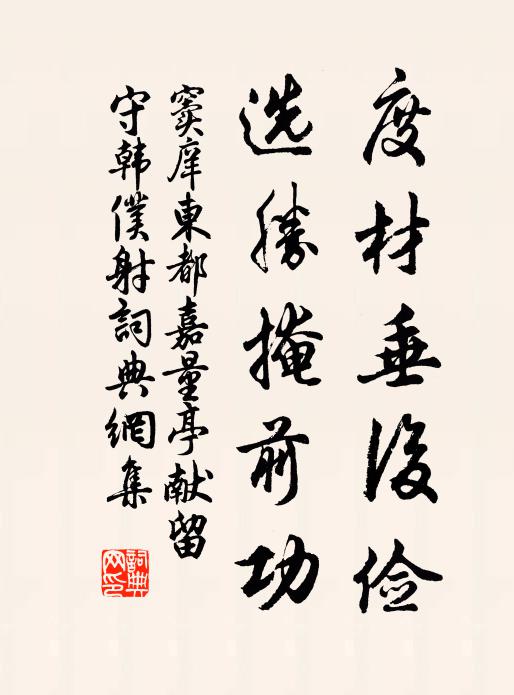 度材垂後儉
选勝掩前功
窦庠東都嘉量亭献留
守韓僕射詞典網集
詞典
网印